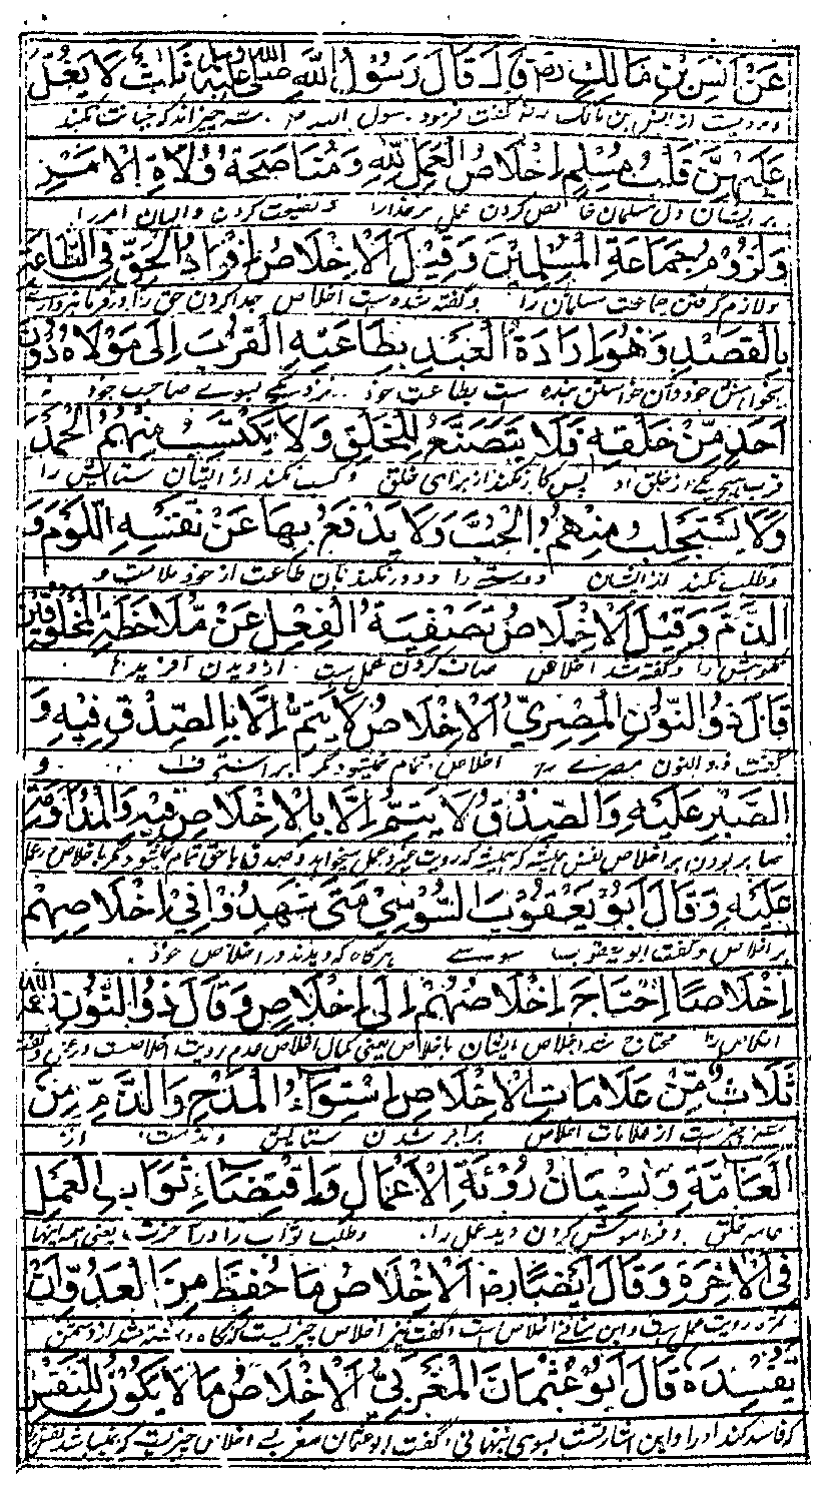 عَنْ اَنَسِ بْنِ مَالِكٍ رض قَالَ قَالَ رَسُوْلُ اللّٰهِ صلى الله عليه وسلم ثَلٰثٌ لَا يَغِلُّ
مرویست از انس بن مالک رض که گفت فرمود رسول الله ... سه چیز اند که خیانت نکند
عَلَيْهِنَّ قَلْبُ مُسْلِمٍ اِخْلَاصُ الْعَمَلِ لِلّٰهِ وَمُنَاصَحَةُ وُلَاةِ الْاَمْرِ
بر ایشان دل مسلمان خالص کردن عمل مر خدا را و نصیحت کردن والیان امر را
وَلُزُوْمُ جَمَاعَةِ الْمُسْلِمِيْنَ وَقِيْلَ الْاِخْلَاصُ اِفْرَادُ الْحَقِّ فِي الطَّاعَةِ
و لازم گرفتن جماعت مسلمانان را و گفته شده است اخلاص جدا کردن حق را در فرمانبرداری
بِالْقَصْدِ وَهُوَ اِرَادَةُ الْعَبْدِ بِطَاعَتِهِ الْقُرْبَ اِلَى مَوْلَاهُ دُوْنَ
بخواهش خود و آن خواستن بنده است بطاعت خود نزدیکی بسوے صاحب خود
اَحَدٍ مِّنْ خَلْقِهِ فَلَا يَتَصَنَّعُ لِلْخَلْقِ وَلَا يَكْتَسِبُ مِنْهُمُ الْحَمْدَ
قرب هیچ یکی از خلق او پس کار نکند از برای خلق و کسب نکند از ایشان ستایش را
وَلَا يَسْتَجْلِبُ مِنْهُمُ الْحُبَّ وَلَا يَدْفَعُ بِهَا عَنْ نَفْسِهِ اللَّوْمَ وَ
و طلب نکند از ایشان دوستے را و دور نکند بآن طاعت از خود ملامت و
الذَّمَّ وَقِيْلَ الْاِخْلَاصُ تَصْفِيَةُ الْفِعْلِ عَنْ مُّلَاحَظَةِ الْمَخْلُوْقِيْنَ
نکوهش را و گفته شد اخلاص صاف کردن عمل ست از دیدن آفریدها
قَالَ ذُو النُّوْنِ الْمِصْرِيُّ الْاِخْلَاصُ لَا يَتِمُّ اِلَّا بِالصِّدْقِ فِيْهِ وَ
گفت ذو النون مصرے رح اخلاص تمام نمیشود مگر براستی ... و
الصَّبْرِ عَلَيْهِ وَالصِّدْقُ لَا يَتِمُّ اِلَّا بِالْاِخْلَاصِ فِيْهِ وَالْمُدَاوَمَةِ
صابر بودن بر اخلاص نفس ... که رویت غیر و عمل میخواهد و صدق با حق تمام نمیشود مگر باخلاص
عَلَيْهِ وَقَالَ اَبُوْ يَعْقُوْبَ السُّوْسِيُّ مَتٰى شَهِدُوْا فِيْ اِخْلَاصِهِمْ
بر اخلاص و گفت ابو یعقوب سوسے هرگاه که دیدند در اخلاص خود
اِخْلَاصًا اِحْتَاجَ اِخْلَاصُهُمْ اِلٰى اِخْلَاصٍ وَقَالَ ذُو النُّوْنِ
اخلاص را محتاج شد اخلاص ایشان باخلاص یعنی کمال اخلاص عدم رویت اخلاص ست
ثَلَاثٌ مِّنْ عَلَامَاتِ الْاِخْلَاصِ اِسْتِوَآءُ الْمَدْحِ وَالذَّمِّ مِنَ
سه چیز ست از علامات اخلاص برابر شدن ستایش و مذمت از
الْعَامَّةِ وَنِسْيَانُ رُؤْيَةِ الْاَعْمَالِ وَاقْتِضَاءِ ثَوَابِ الْعَمَلِ
عامه خلق و فراموش کردن دید عمل را و طلب ثواب را در آخرت یعنی همه اینها
فِي الْاٰخِرَةِ وَقَالَ اَيْضًا رح الْاِخْلَاصُ مَا حُفِظَ مِنَ الْعَدُوِّ اَنْ
... رویت عمل ست و این منافی اخلاص ست و گفت نیز اخلاص چیزیست که نگاه داشته شد از دشمن
يُّفْسِدَهُ قَالَ اَبُوْ عُثْمَانَ الْمَغْرَبِيُّ الْاِخْلَاصُ مَا لَا يَكُوْنُ لِلنَّفْسِ
که فاسد کند او را و این اشارتست بسوی پنهانی گفت ابو عثمان مغربے اخلاص چیزیست که نمیباشد نفس را